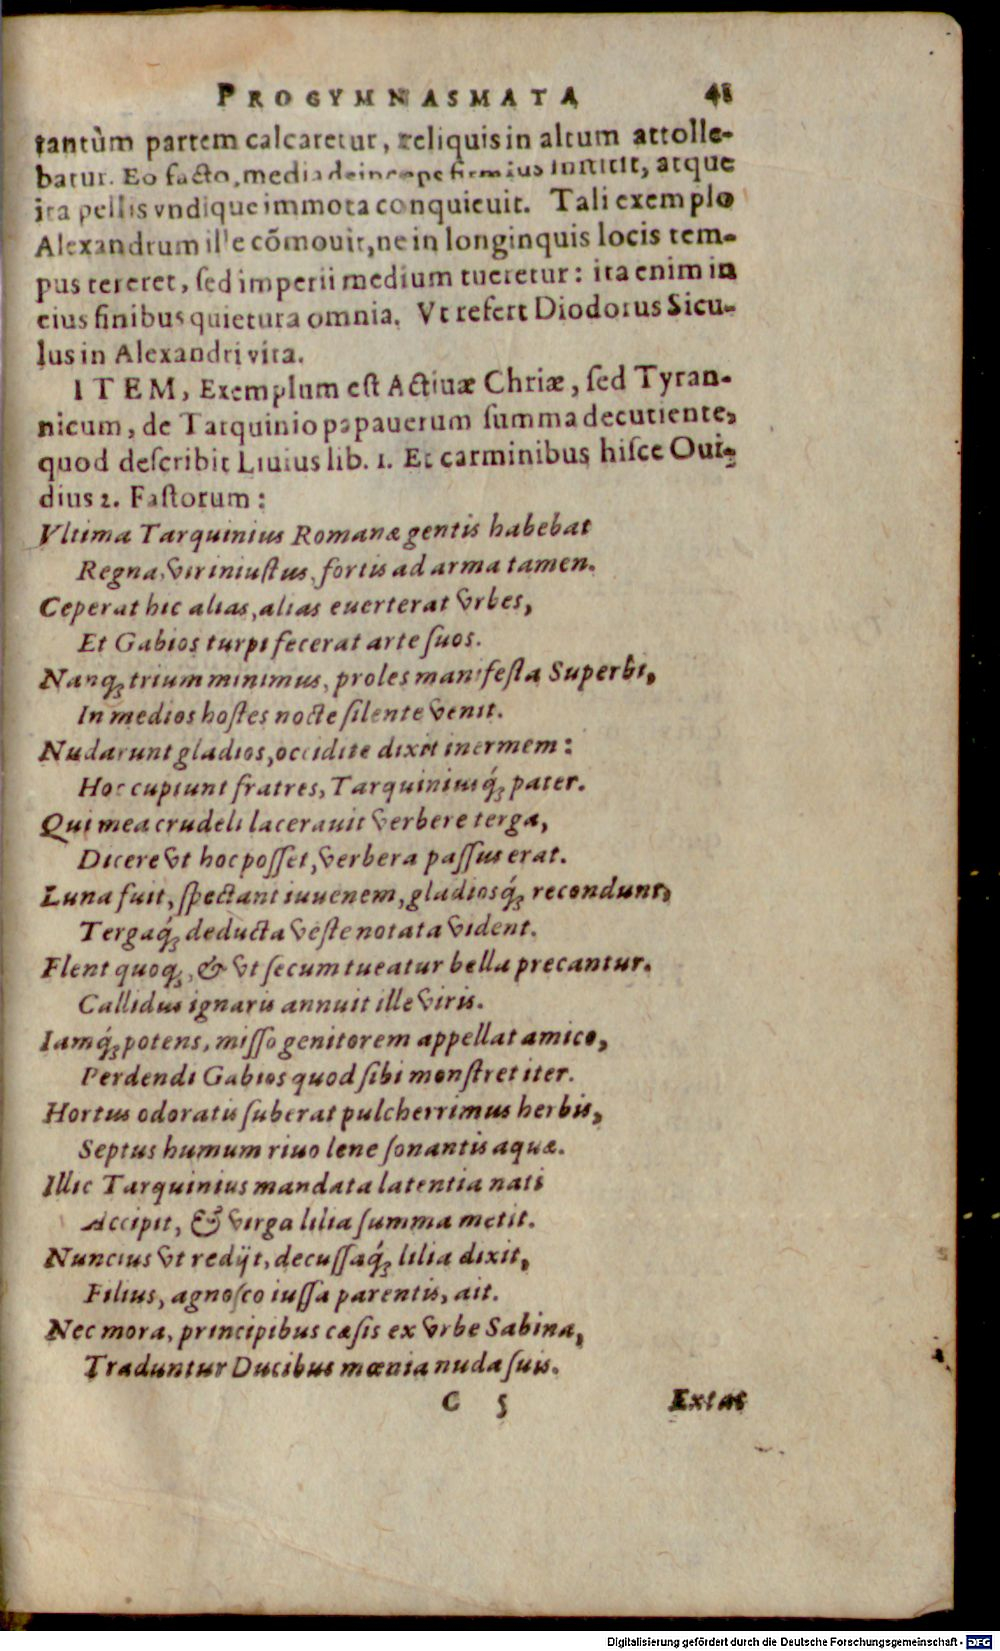 PROGYMNASMATA 41
tantùm partem calcaretur, reliquis in altum attolle-
batur. Eo facto, media deinceps firmius institit, atque
ita pellis vndique immota conquieuit. Tali exemplo
Alexandrum ille cõmouit, ne in longinquis locis tem-
pus tereret, ſed imperii medium tueretur: ita enim in
eius finibus quietura omnia. Vt refert Diodorus Sicu-
lus in Alexandri vita.
ITEM, Exemplum eſt Actiuæ Chriæ, ſed Tyran-
nicum, de Tarquinio papauerum ſumma decutiente,
quod deſcribit Liuius lib. 1. Et carminibus hiſce Oui-
dius 2. Faſtorum:
Vltima Tarquinius Romanæ gentis habebat
Regna, vir iniuſtus, fortis ad arma tamen.
Ceperat hic alias, alias euerterat vrbes,
Et Gabios turpi fecerat arte ſuos.
Nanq; trium minimus, proles manifeſta Superbi,
In medios hoſtes nocte ſilente venit.
Nudarunt gladios, occidite dixit inermem:
Hoc cupiunt fratres, Tarquiniusq́; pater.
Qui mea crudeli lacerauit verbere terga,
Dicere vt hoc poſſet, verbera paſſus erat.
Luna fuit, ſpectant iuuenem, gladiosq́; recondunt,
Tergaq́; deducta veſte notata vident.
Flent quoq;, & vt ſecum tueatur bella precantur.
Callidus ignaris annuit ille viris.
Iamq́; potens, miſſo genitorem appellat amico,
Perdendi Gabios quod ſibi monſtret iter.
Hortus odoratis ſuberat pulcherrimus herbis,
Septus humum riuo lene ſonantis aquæ.
Illic Tarquinius mandata latentia nati
Accipit, & virga lilia ſumma metit.
Nuncius vt redijt, decuſſaq́; lilia dixit,
Filius, agnoſco iuſſa parentis, ait.
Nec mora, principibus cæſis ex vrbe Sabina,
Traduntur Ducibus mœnia nuda ſuis.
C 5 Extat
Digitalisierung gefördert durch die Deutsche Forschungsgemeinschaft - DFG